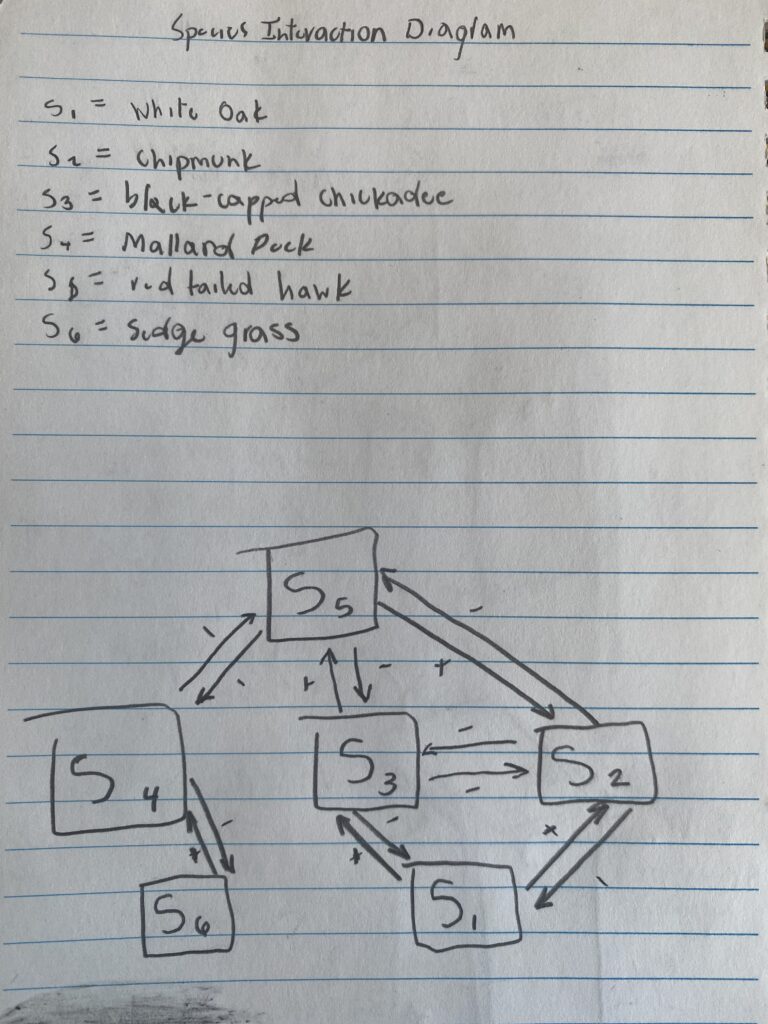 Species Interaction Diagram
S1 = White Oak
S2 = Chipmunk
S3 = black-capped chickadee
S4 = Mallard Duck
S5 = red tailed hawk
S6 = Sedge grass
S5
-
- -
+ - +
S4 S3 - S2
-
- - +
+ + -
S6 S1